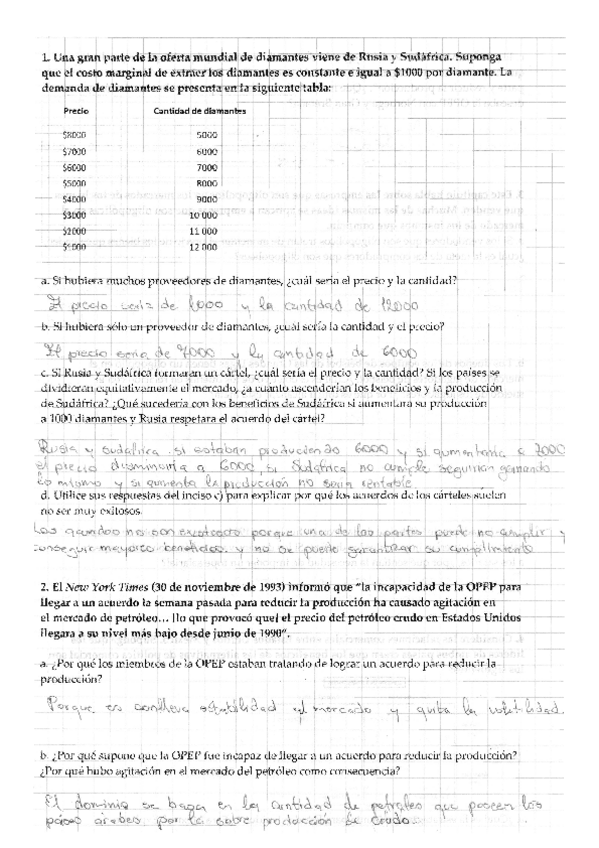 1. Una gran parte de la oferta mundial de diamantes viene de Rusia y Sudáfrica. Suponga
que el costo marginal de extraer los diamantes es constante e igual a $1000 por diamante. La
demanda de diamantes se presenta en la siguiente tabla:
Precio Cantidad de diamantes
$8000 5000
$7000 6000
$6000 7000
$5000 8000
$4000 9000
$3000 10 000
$2000 11 000
$1000 12 000
a. Si hubiera muchos proveedores de diamantes, ¿cuál sería el precio y la cantidad?
El precio seria de 1000 y la cantidad de 12000
b. Si hubiera sólo un proveedor de diamantes, ¿cuál sería la cantidad y el precio?
El precio seria de 7000 y la cantidad de 6000
c. Si Rusia y Sudáfrica formaran un cártel, ¿cuál sería el precio y la cantidad? Si los países se
dividieran equitativamente el mercado, ¿a cuánto ascenderían los beneficios y la producción
de Sudáfrica? ¿Qué sucedería con los beneficios de Sudáfrica si aumentara su producción
a 1000 diamantes y Rusia respetara el acuerdo del cártel?
Rusia y sudafrica si estaban produciendo 6000 y si aumentaria a 7000
el precio disminuiria a 6000, si Sudafrica no cumple seguirian ganando
lo mismo y si aumenta la producción no seria rentable
d. Utilice sus respuestas del inciso c) para explicar por qué los acuerdos de los cárteles suelen
no ser muy exitosos.
Los no son porque una de las partes puede no cumplir y
conseguir mayores beneficios y no se puede garantizar su cumplimiento
2. El New York Times (30 de noviembre de 1993) informó que “la incapacidad de la OPEP para
llegar a un acuerdo la semana pasada para reducir la producción ha causado agitación en
el mercado de petróleo… [lo que provocó que] el precio del petróleo crudo en Estados Unidos
llegara a su nivel más bajo desde junio de 1990”.
a. ¿Por qué los miembros de la OPEP estaban tratando de lograr un acuerdo para reducir la
producción?
Porque conlleva estabilidad al mercado y quita la volatilidad.
b. ¿Por qué supone que la OPEP fue incapaz de llegar a un acuerdo para reducir la producción?
¿Por qué hubo agitación en el mercado del petróleo como consecuencia?
El dominio se basa en la cantidad de petroleo que poseen los
paises arabes por la sobre producción de crudo.